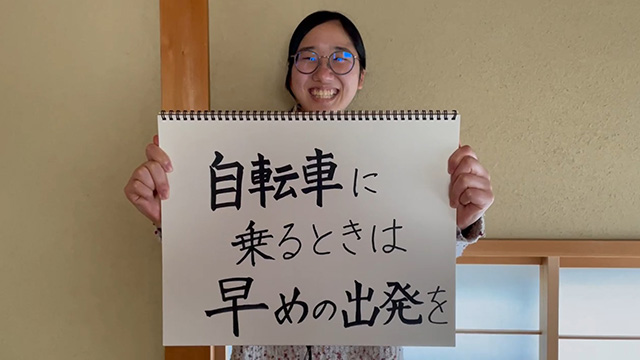 自転車に
乗るときは
早めの出発を